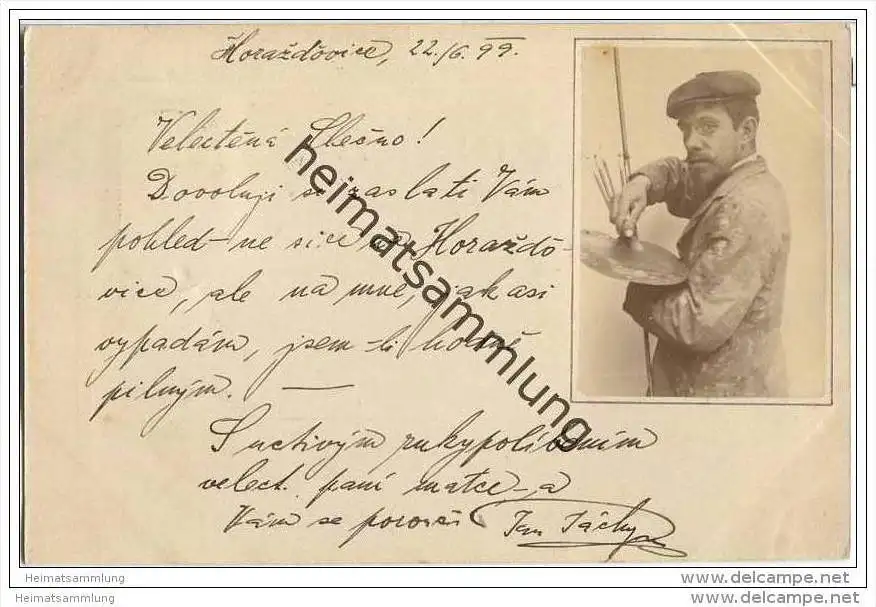 Horažďovice, 22./6. 99.
Velectěná Slečno!
Dovoluji si zaslati Vám
pohled - ne sice na Horaždo-
vice, ale na mne, jak asi
vypadám, jsem-li hodně
pilným. —
S uctivým rukypolíbením
velect. paní matce a
Vám se poroučí Jan
heimatsammlung
Heimatsammlung
www.delcampe.net
Heimatsammlung
www.delcampe.net